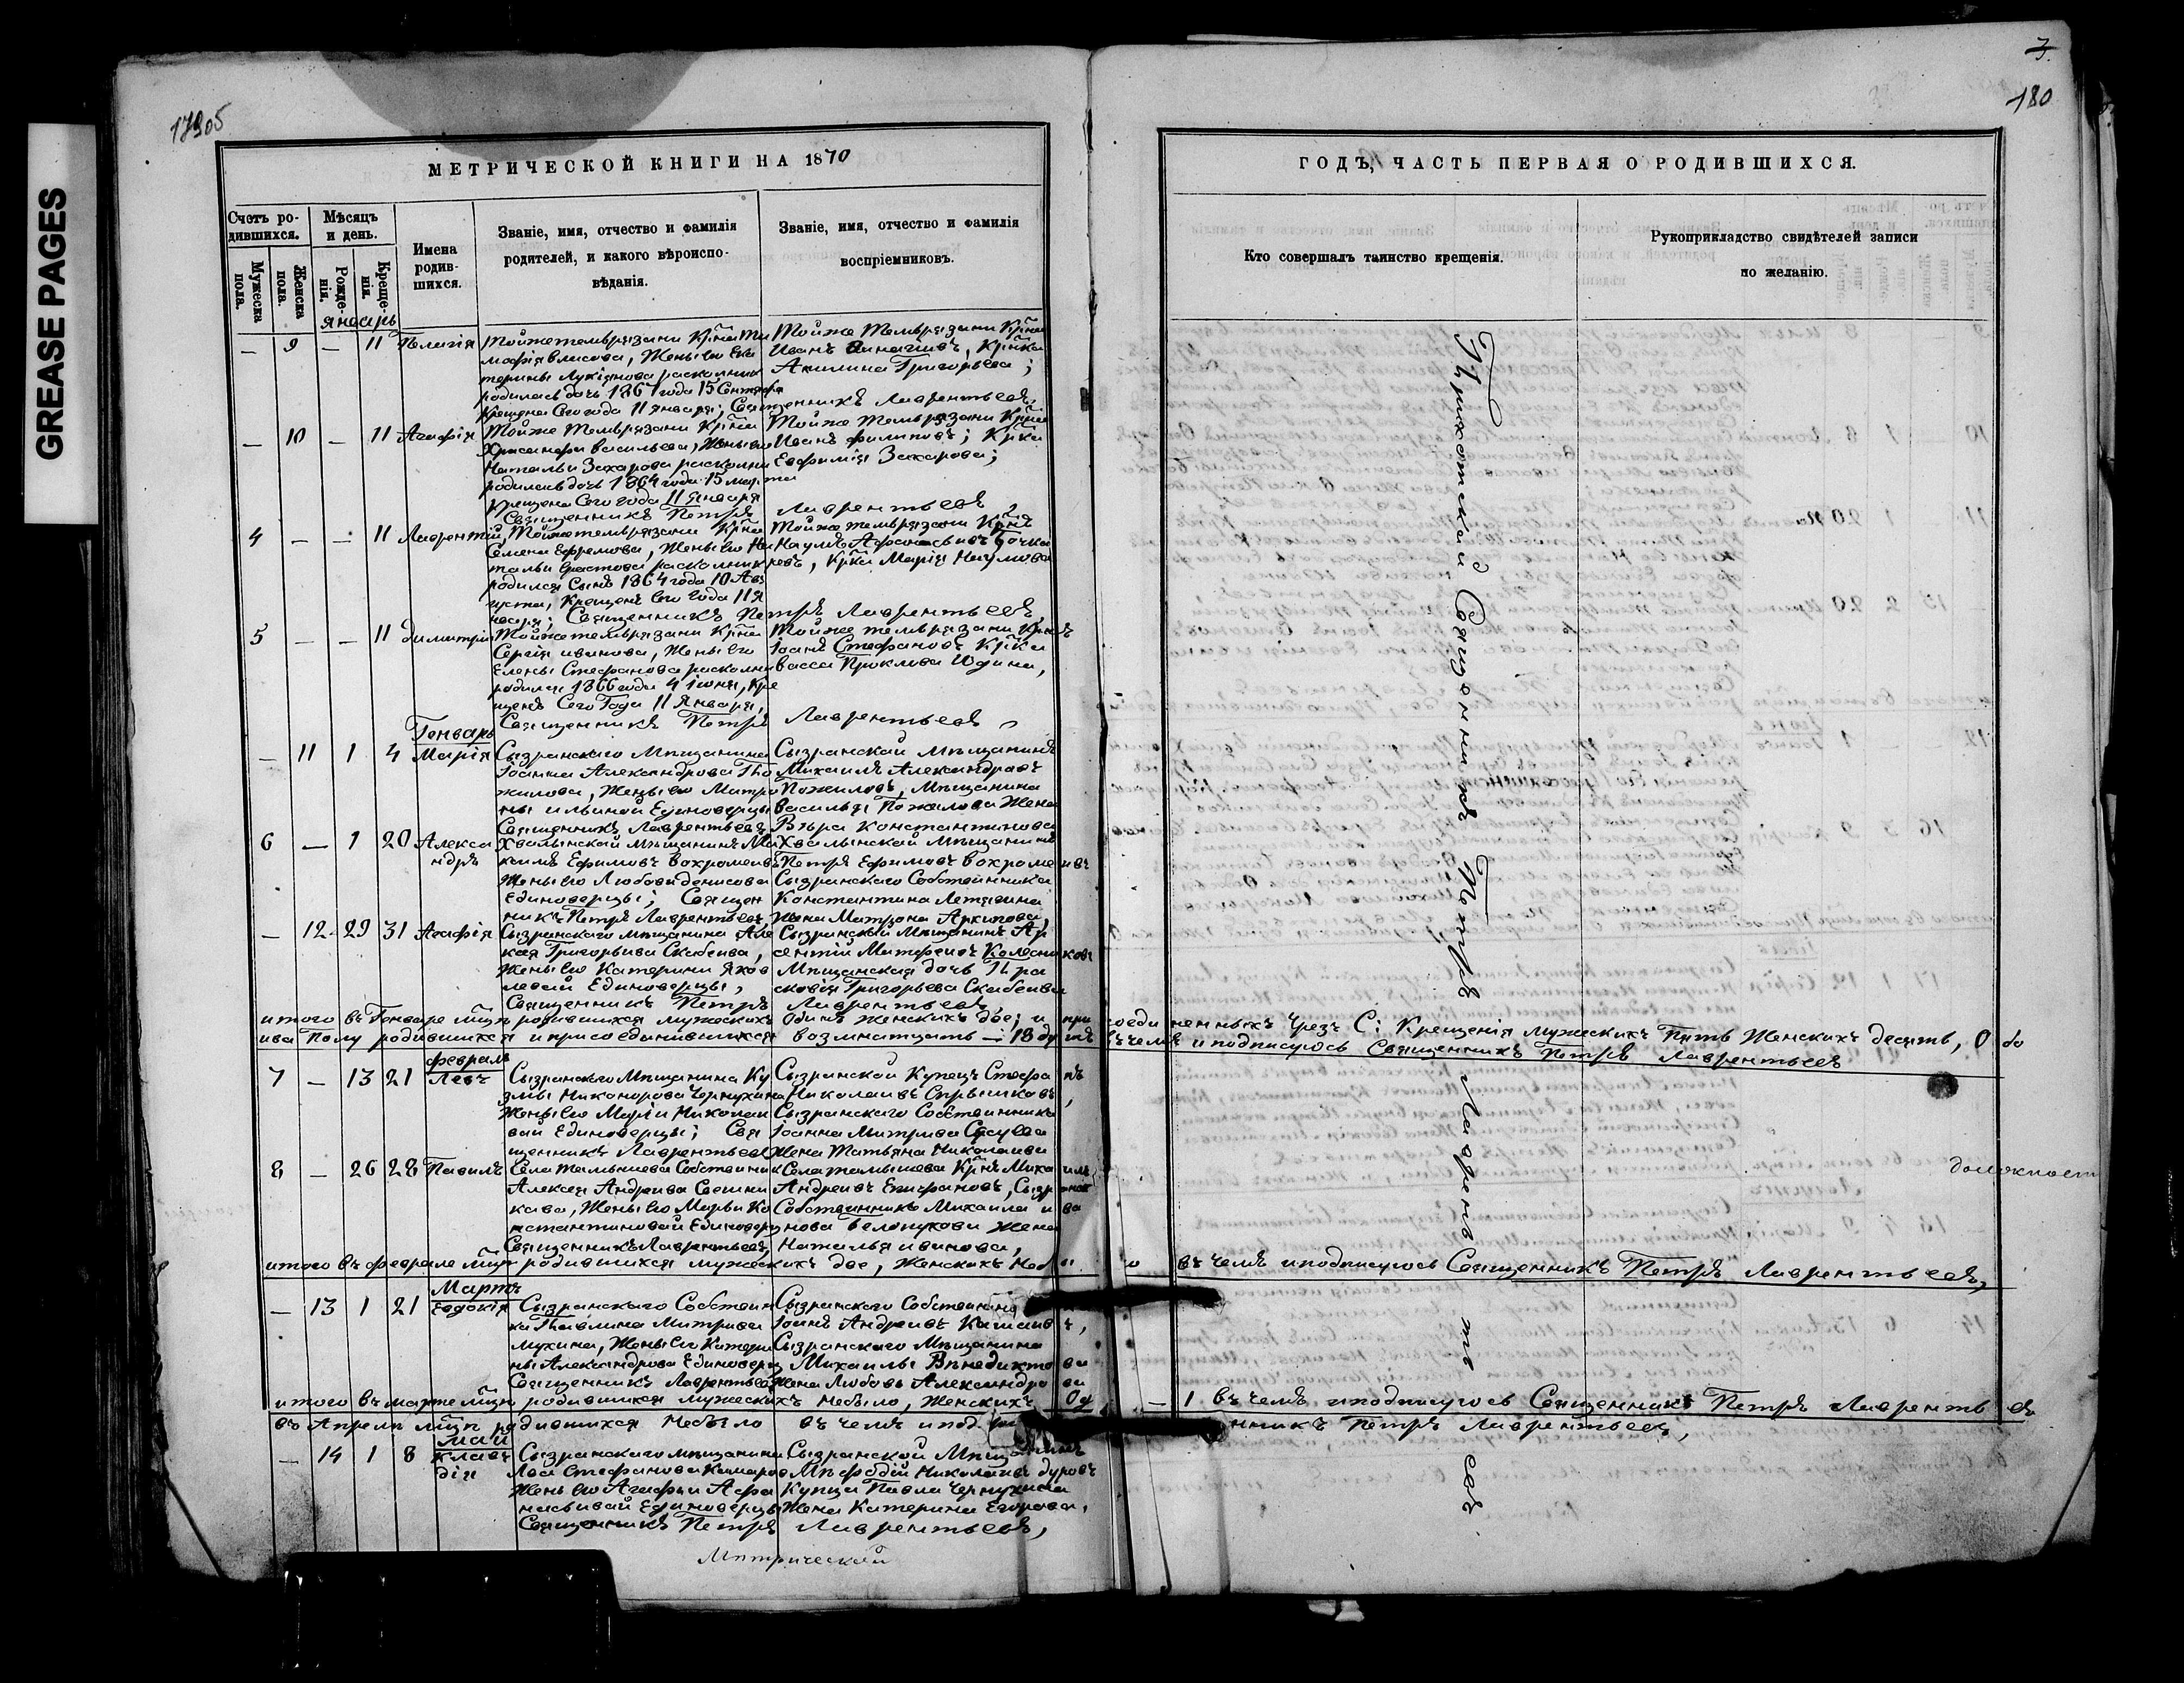 GREASE PAGES
17905
3.
180
МЕТРИЧЕСКОЙ КНИГИ НА 1870
ГОДЪ, ЧАСТЬ ПЕРВАЯ О РОДИВШИХСЯ.
Счетъ родившихся.
Мужеска пола.
Женска пола.
Мѣсяцъ и день.
Рожденія.
Крещенія.
Имена родившихся.
Званіе, имя, отчество и фамилія
родителей, и какого вѣроиспо-
вѣданія.
Званіе, имя, отчество и фамилія
воспріемниковъ.
Кто совершалъ таинство крещенія.
Рукоприкладство свидѣтелей записи
по желанію.
январь
— 9 — 11 Пелагія
терины Лукіянова раскольник
родилась дочь 1867 года 15 Сентября
Крещена Сего года 11 января; Священникъ Лаврентьевъ,
Акилина Григорьева;
— 10 — 11 Агафія
Тойже Темврязани Крна
Хрисанфа васильева, Жены его
Натальи Захарова раскольни
родилась дочь 1864 года 15 марта
крещена Сего года 11 января
Священникъ Петръ Лаврентьевъ
Тойже Темврязани
Иванъ филиповъ; Крка
Евфимія Захарова;
4 — — 11 Лаврентій
Тойже темврязани Крна
Семена Ефремова, Жены его На
родился Сынъ 1864 года 10 Авг
густа, Крещенъ Сего года 11 Я
нваря; Священникъ Петръ Лаврентьевъ,
Тойже темврязани Крнъ
Наумъ Афонасьевъ Бочка
ревъ, Крка Марія Наумова
5 — — 11 Димитрій
Тойже темврязани Крна
Сергія иванова, Жены его
Елены Стефанова раскольни
родился 1866 года 4 іюня, Кре
щенъ Сего Года 11 Января,
Священникъ Петръ Лаврентьевъ,
Тойже темврязани Крнъ
Іоанъ Стефановъ Крка
васса Проклова Юдина,
Генварь
— 11 1 4 Марія
Сызранскаго Мещанина
Іоанна Александрова По
жилова, Жены его Матро
ны ильиной Единоверцы
Священникъ Лаврентьевъ
Сызранской Мещанинъ
Михаилъ Александровъ
Пожиловъ, Мещанина
василья Пожилова Жена
Вѣра Константинова
6 — 1 20 Александръ
Хвалынской Мещанинъ Ми
хаилъ Ефимовъ вохромеивъ
Жены его Любови денисова
Единоверцы; Священ
никъ Петръ Лаврентьевъ,
Хвалынской Мещанинъ
Петръ Ефимовъ вохромеивъ
Сызранскаго Собственника
Константина Летягина
Жена Матрона Архипова,
— 12 29 31 Агафія
Сызранскаго мещанина Але
ксея Григорьива Скабеива,
Жены его Катерины Яков
левай Единоверцы,
Священникъ Петръ Лаврентьевъ,
Сызранскай Мещанинъ Ар
сентій Матфеивъ Колесниковъ
Мещанская дочь Пра
сковья Григорьева Скабеива
итого въ Генваре мцѣ родившихся мужескихъ Одинъ женскихъ две; и присоединенныхъ Чрезъ С: Крещенія мужескихъ Пять Женскихъ десять, Обо
ива Полу родившихся и присоединившихся возмнатцать — 18 душъ въ чемъ и подписуюсь Священникъ Петръ Лаврентьевъ
февраль
7 — 13 21 Левъ
Сызранскаго Мещанина Ку
змы Никонорова Чернухина
Жены его Маріи Николаи
вай Единоверцы; Свя
щенникъ Лаврентьевъ
Сызранской Купецъ Стефанъ
Николаивъ Стрыниковъ,
Сызранскаго Собственника
Іоанна Митрива Сясуева
Жена Татьяна Николаива
8 — 26 28 Павилъ
Села темышева Собственик
Алексея Андреива Свешни
кава, Жены его Марьи Ко
нстантиновай Единовери
Священникъ Лаврентьевъ,
Села темышева Крнъ Михаилъ
Андреивъ Епифановъ,
Собственника Михаила ива
нова Белопухова Жена
Наталья иванова,
итого въ феврале мцѣ родившихся мужескихъ две, Женскихъ Небыло въ чемъ иподписуюсь Священникъ Петръ Лаврентьевъ,
Мартъ
— 13 1 21 Евдокія
Сызранскаго Собствен
ка Павлина Митрива
мухина, Жены его Катери
ны Александрова Единоверц
Священникъ Лаврентьевъ
Сызранскаго Собственника
Іоанъ Андреивъ
Сызранскаго Мещанина
Михаилы Венедиктова
Жена Любовь Александрова
итого въ марте мцѣ родившихся мужескихъ Небыло, Женскихъ Од — 1 въ чемъ иподписуюсь Священникъ Петръ Лаврентьевъ
въ Апреле мцѣ родившихся Небыло въ чемъ и под нникъ Петръ Лаврентьевъ,
маи
— 14 1 8 Клавдія
Сызранскаго мещанина
Льва Стефанова Комаров
Жены его Агафьи Афа
насьивай Единоверцы
Священникъ Петръ Лаврентьевъ,
Сызранской Мещанинъ
Мефодій Николаивъ дуровъ
Купца Павла Чернухина
Жена Катерина Егорова,
Метрической
Приходской Священникъ Петръ Лаврентьевъ